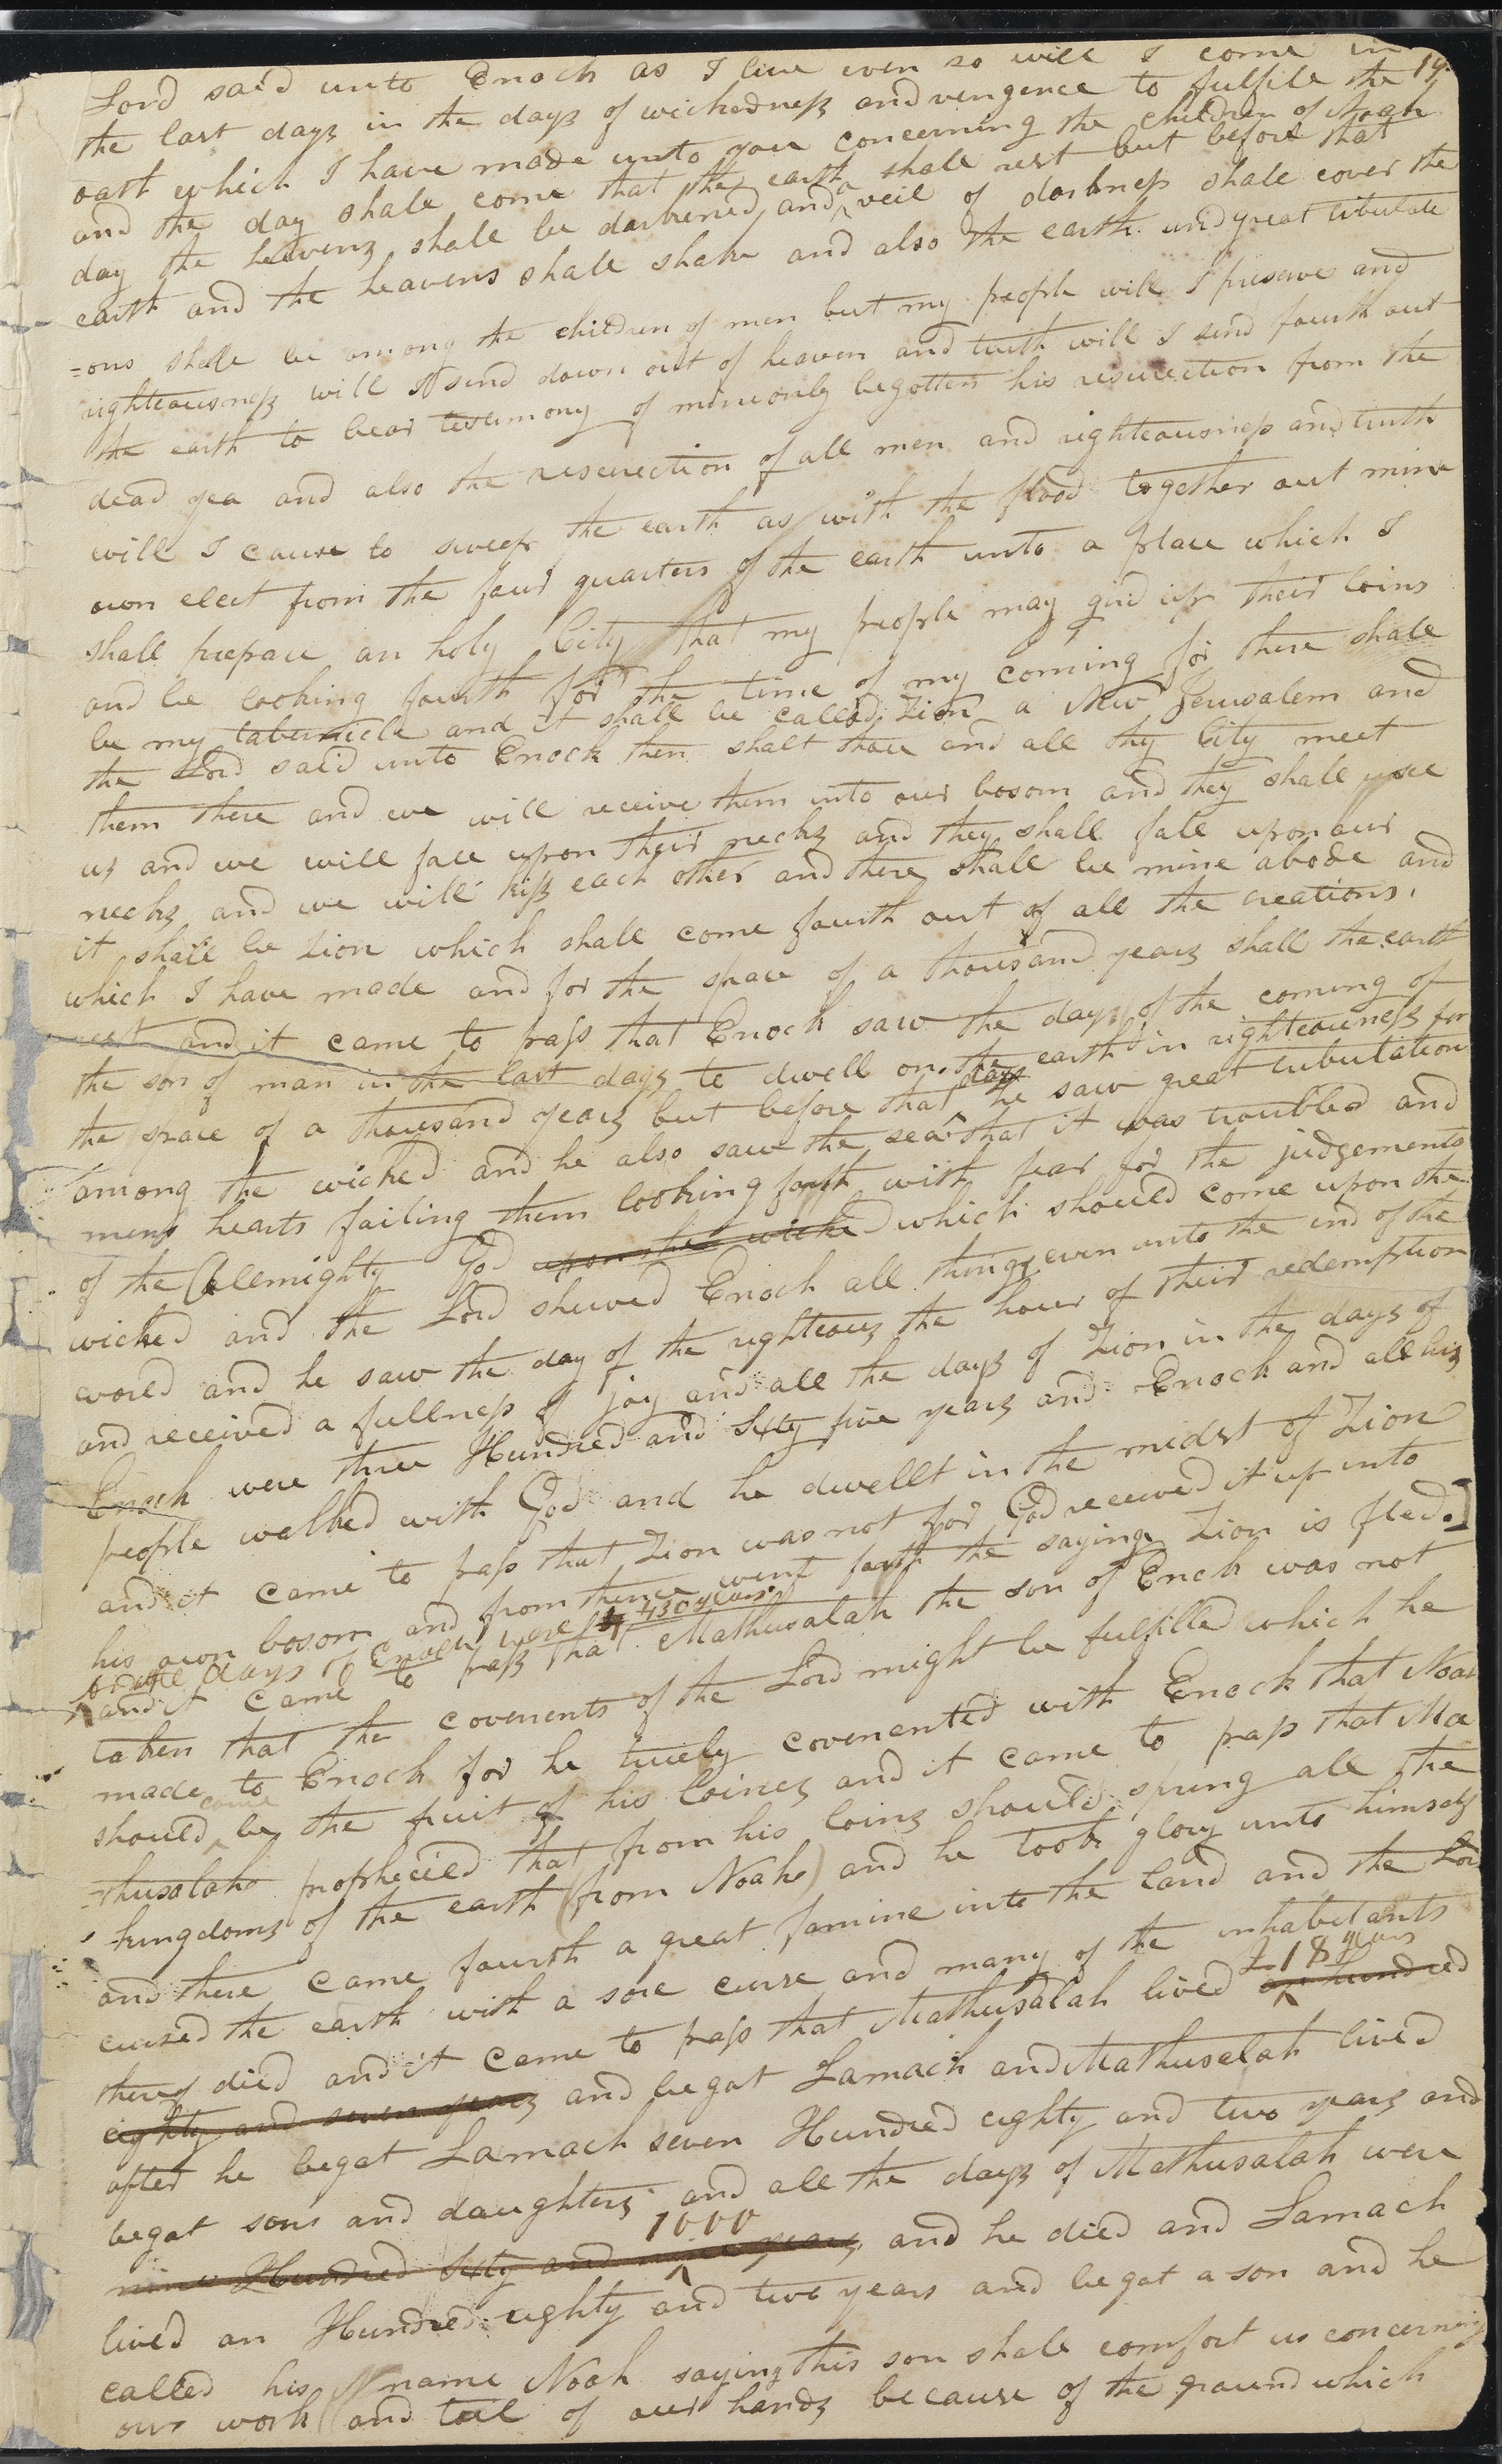 19.
Lord said unto Enoch as I live even so will I come in
the last days in the days of wickedness and vengence to fulfile the
oath which I have made unto you concerning the children of Noah
and the day shall come that the earth shall rest but before that
day the heavens shall be darkened and a veil of darkness shall cover the
earth and the heavens shall shake and also the earth and great tribulati
=ons shall be among the children of men but my people will I preserve and
righteousness will I send down out of heaven and truth will I send fourth out
the earth to bear testimony of mine only begotten his resurection from the
dead yea and also the resurection of all men and righteousness and truth
will I cause to sweep the earth as with the flood together out mine
own elect from the four quarters of the earth unto a place which I
shall prepare an holy City that my people may gird up their loins
and be looking fourth for the time of my coming for there shall
be my tabernicle and it shall be called Zion a New Jerusalem and
the Lord said unto Enoch then shalt thou and all thy City meet
them there and we will receive them into our bosom and they shall see
us and we will fall upon their necks and they shall fall upon our
necks and we will kiss each other and there shall be mine abode and
it shall be Zion which shall come fourth out of all the creations.
which I have made and for the space of a thousand years shall the earth
rest and it came to pass that Enoch saw the days of the coming of
the son of man in the last days to dwell on the earth in righteousness for
the space of a thousand years but before that day he saw great tribulation
among the wicked and he also saw the sea that it was troubled and
mens hearts failing them looking forth with fear for the judgements
of the Allmighty God upon the wicke which should come upon the
wicked and the Lord shewed Enoch all things even unto the end of the
world and he saw the day of the righteous the hour of their redemption
and received a fullness of joy and all the days of Zion in the days of
Enoch were three Hundred and Sixty five years and Enoch and all his
people walked with God and he dwellt in the midst of Zion
and it came to pass that Zion was not for God received it up into
his own bosom and from thence went forth the saying Zion is fled.]
and all days of Enoch were 430 years.
and it came to pass that Mathusalah the son of Enoch was not
taken that the covenents of the Lord might be fulfilled which he
made to Enoch for he truely covenented with Enoch that Noah
should come be the fruit of his loines and it came to pass that Ma
=thusalah prophecied that from his loins should spring all the
kingdoms of the earth (from Noah) and he took glory unto himself
and there came fourth a great famine into the land and the Lord
cursed the earth with a sore curse and many of the inhabitants
there of died and it came to pass that Mathusalah lived 218 years an hundred
eighty and seven years and begat Lamach and Mathuselah lived
after he begat Lamach seven Hundred eighty and two years and
begat sons and daughters and all the days of Mathusalah were
1000
nine Hundred Sixty and nine years, and he died and Lamach
lived an Hundred eighty and two years and begat a son and he
called his name Noah saying this son shall comfort us concerning
our work and toil of our hands because of the ground which